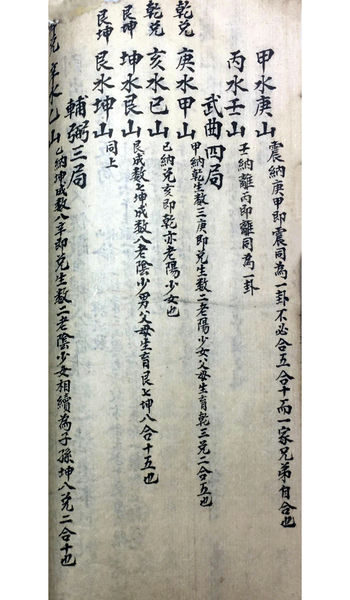 甲水庚山 震納庚甲即震同為一卦不必合五合十而一家兄弟自合也
丙水壬山 壬納離丙即離同為一卦
武曲四局
乾兌 庚水甲山 甲納乾生数三庚即兌生数二老陽少女父母生育乾三兌二合五也
乾兌 亥水巳山 巳納兌亥即乾亦老陽少女也
艮坤 坤水艮山 艮成数七坤成数八老陰少男父母生育艮七坤八合十五也
艮坤 艮水坤山 同上
輔弼三局
兌 辛水乙山 乙納坤成数八辛即兌生数二老陰少女相續為子孫坤八兌二合十也